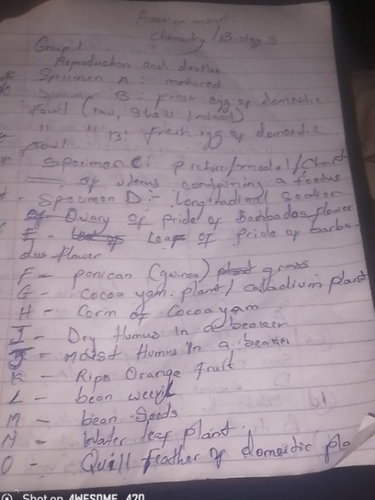 Chemistry / Biology
Group 1
Reproduction and
Specimen A: matured
Specimen B: fresh egg of domestic
fowl (raw, shell intact)
" " B: fresh egg of domestic
fowl
Specimen C: picture/model/chart
of uterus containing a foetus
Specimen D - Longitudinal section
of Ovary of pride of Barbados flower
E - Leaf of pride of barba-
dos flower
F - panican (guinea) grass
G - Cocoa yam plant/ calladium plant
H - Corn of Cocoayam
I - Dry Humus in a beaker
J - Moist Humus in a beaker
K - Ripe Orange fruit
L - bean
M - bean Seeds
N - Water leaf plant
O - Quill feather of domestic
Shot on 4WESOME_420